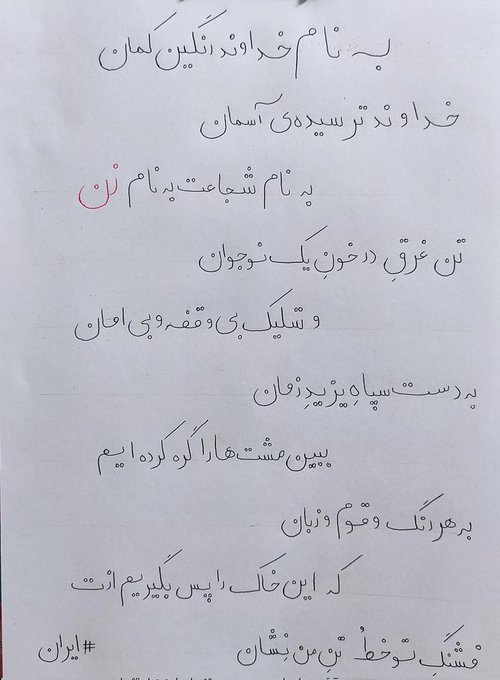 به نام خداوند رنگین کمان
خداوند ترسیده‌ی آسمان
به نام شجاعت به نام زن
تن غرقِ در خونِ یک نوجوان
و شلیک بی وقفه و بی امان
به دست سپاهِ یزیدِ زمان
ببین مشت ها را گره کرده ایم
به هر رنگ و قوم و زبان
که این خاک را پس بگیریم ازت
فشنگِ تو خطُ تنِ من نِشان
#ایران